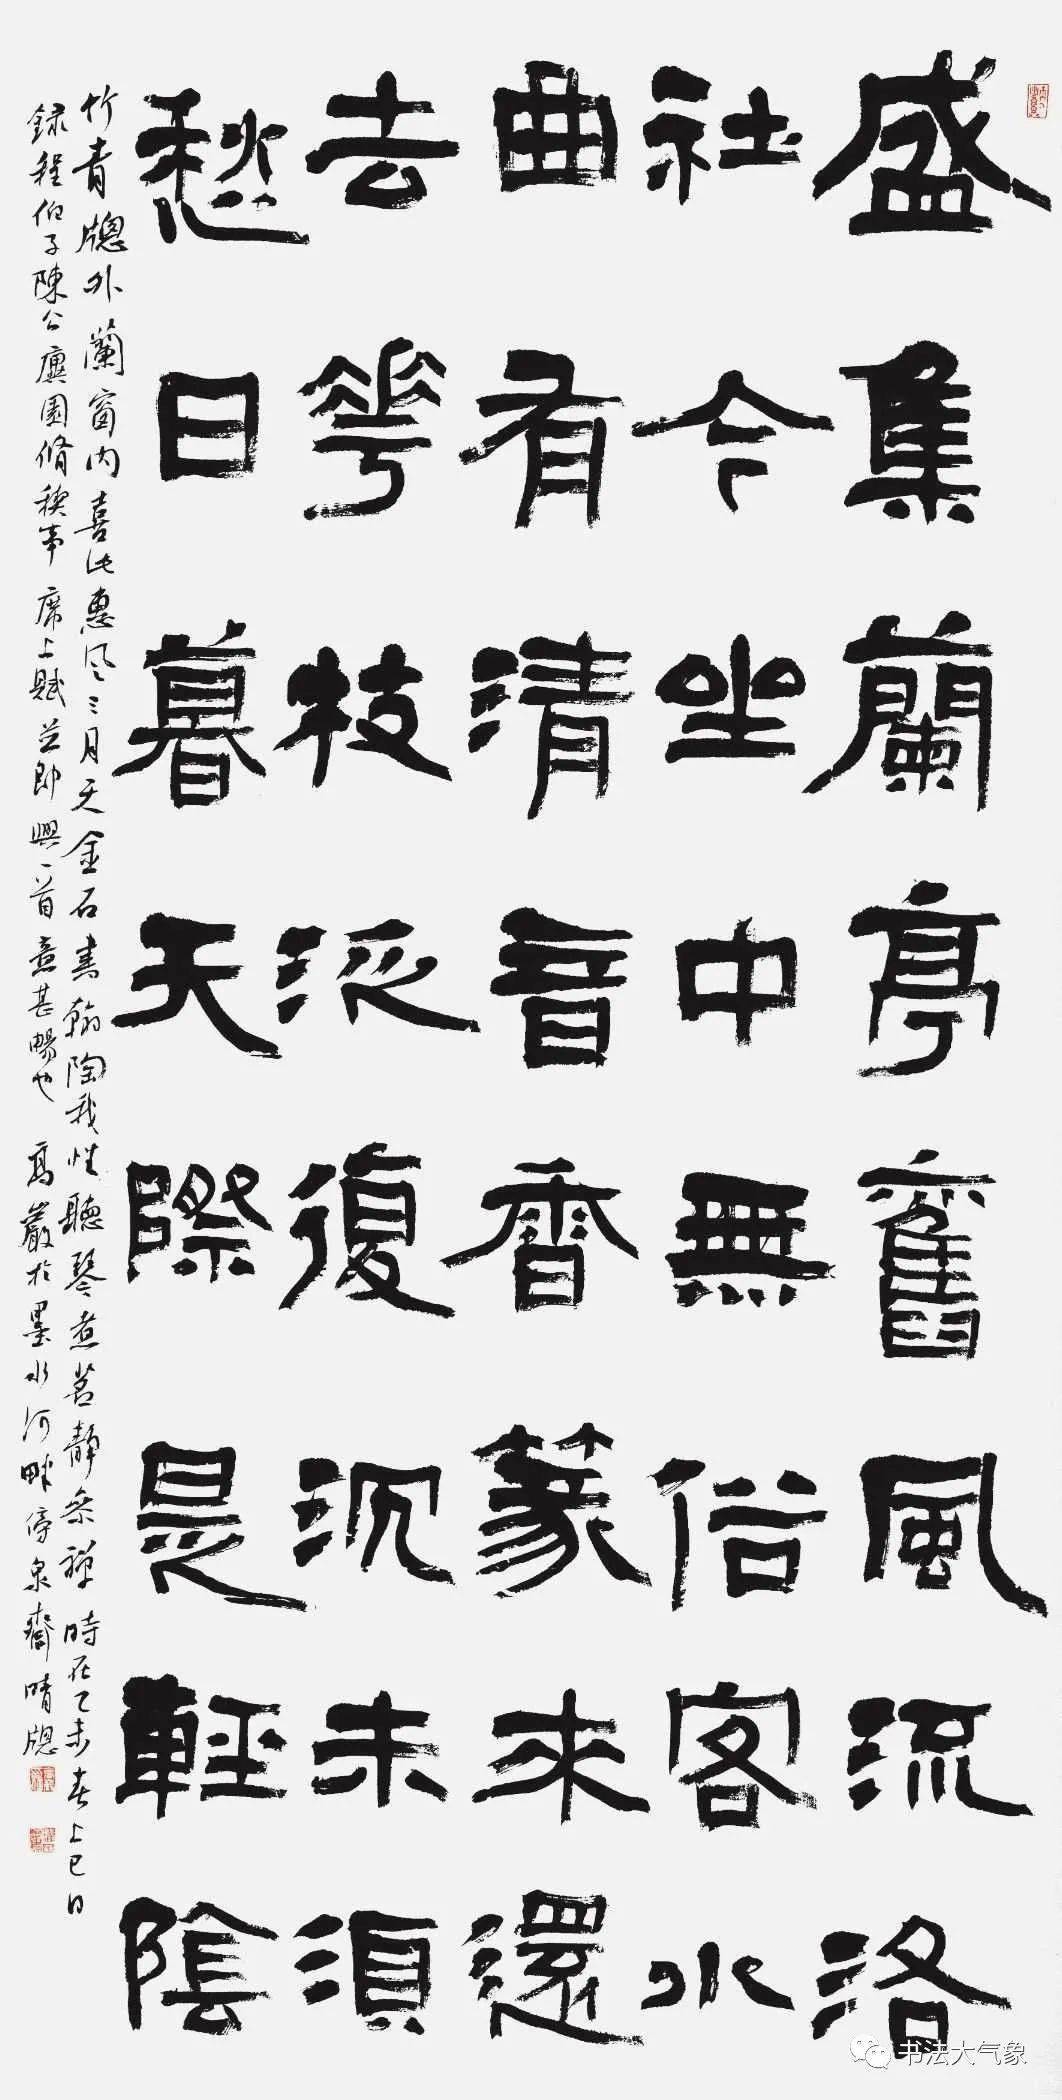 盛集蘭亭舊風流洛
社今坐中無俗客水
曲有清音香篆來還
去花枝泛復沉未須
愁日暮天際是輕陰
竹青牕外蘭窗内喜此惠风三月天金石書翰陶我性聽琴煮茗靜參禅時在乙未春上巳日
録程伯子陳公廙園脩禊事席上賦並即興一首意甚暢也 高巖於墨水河畔傍泉齋晴牕
书法大气象